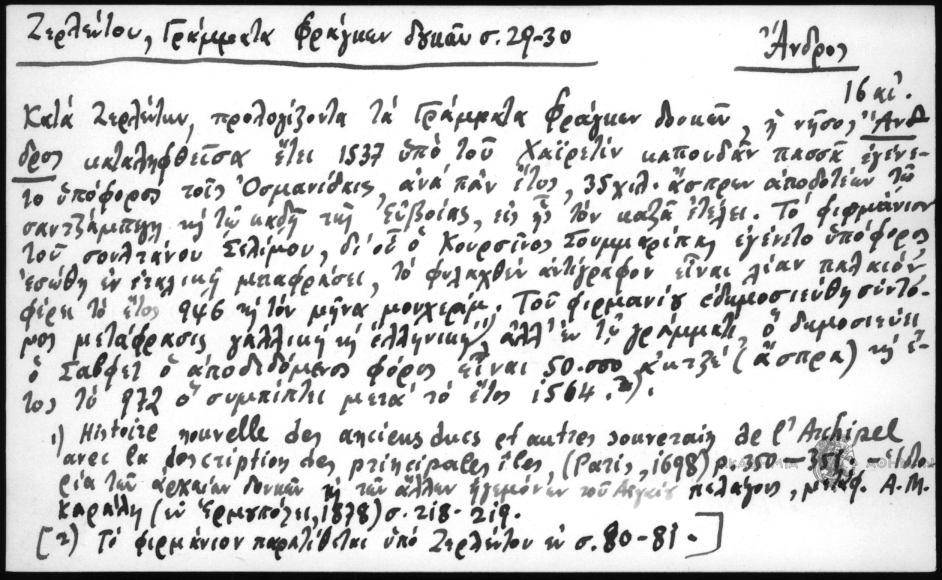 Ζερλέντου, Γράμματα Φράγκων δουκῶν σ. 29-30
Ἄνδρος
16 αἰ.
Κατά Ζερλέντην, προλογίζοντα τά Γράμματα Φράγκων δουκῶν, ἡ νῆσος Ἄν
δρος καταληφθεῖσα ἔτει 1537 ὑπό τοῦ Χαϊρετίν καπουδάν πασσᾶ ἐγένε-
το ὑπόφορος τοῖς Ὀσμανίδαις, ἀνά πᾶν ἔτος, 35 χιλ. ἄσπρων ἀποδοτέων τῷ
σαντζάμπεη κή τῷ καδῆ τῆς Εὐβοίας, εἰς ἧς τόν καζᾶ ἐτέλει. Τό φιρμάνιον
τοῦ σουλτάνου Σελίμου, δι' οὗ ὁ Κουρσῖνος Σουμμαρίπας ἐγένετο ὑπόφορος
ἐσώθη ἐν ἰταλικῇ μεταφράσει, τό φυλαχθέν ἀντίγραφον εἶναι λίαν παλαιόν
φέρει τό ἔτος 946 κή τόν μῆνα μουχερέμ. Τοῦ φιρμανίου ἐδημοσιεύθη σύντο-
μος μετάφρασις γαλλική κή ἑλληνική 1), ἀλλ' ἐν τῷ γράμματι, ὅ δημοσιεύει
ὁ Σαβφέτ ὁ ἀποδιδόμενος φόρος εἶναι 50.000 ἀκτζέ (ἄσπρα) κή ἔ-
τος τό 972 ὅ συμπίπτει μετά τό ἔτος 1564. 2).
1) Histoire nouvelle des anciens ducs et autres souverains de l'Archipel
avec la description des principales îles, (Paris, 1698) p. 350 - 351. - Ἱστο-
ρία τῶν ἀρχαίων δουκῶν κή τῶν ἄλλων ἡγεμόνων τοῦ Αἰγαίου πελάγους, μεταφ. Α.Μ.
Καράλη (ἐν Ἑρμουπόλει, 1878) σ. 218-219.
[2) Τό φιρμάνιον παρατίθεται ὑπό Ζερλέντου ἐν σ. 80-81.]